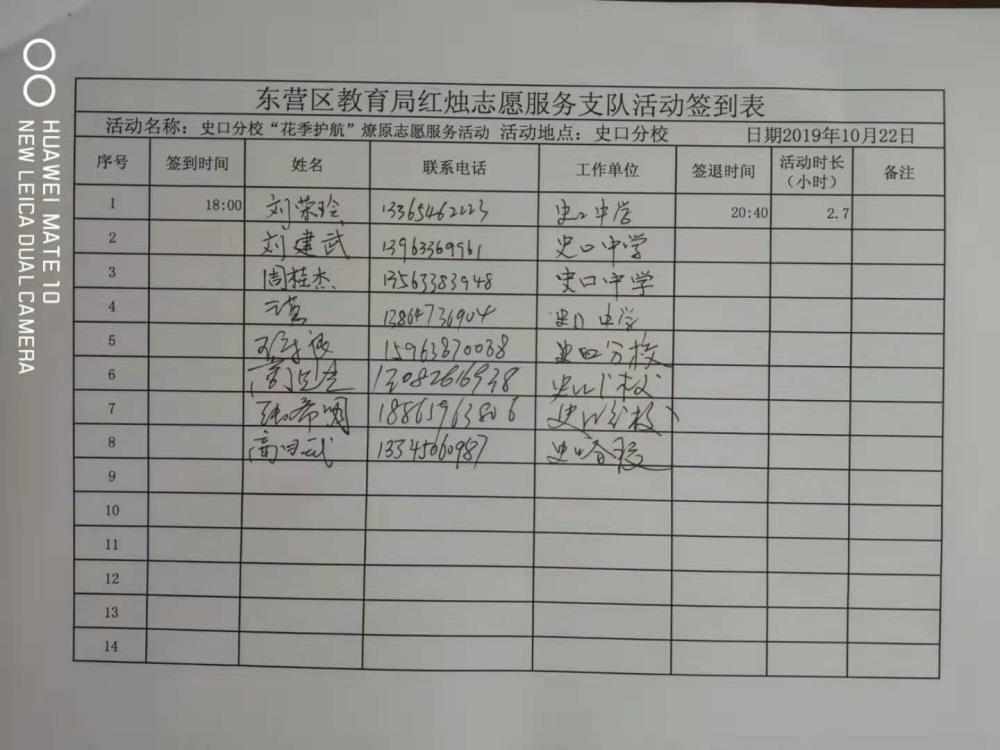 HUAWEI MATE 10
NEW LEICA DUAL CAMERA
东营区教育局红烛志愿服务支队活动签到表
活动名称：史口分校“花季护航”燎原志愿服务活动 活动地点：史口分校 日期2019年10月22日
序号 签到时间 姓名 联系电话 工作单位 签退时间 活动时长（小时） 备注
1 18:00 刘荣玲 13365462223 史口中学 20:40 2.7
2 刘建武 13963369961 史口中学
3 周桂杰 13563383948 史口中学
4 13864736904 史口中学
5 15963870038 史口分校
6 史口分校
7 张希明 18861963806 史口分校
8 13345060987 史口分校
9
10
11
12
13
14